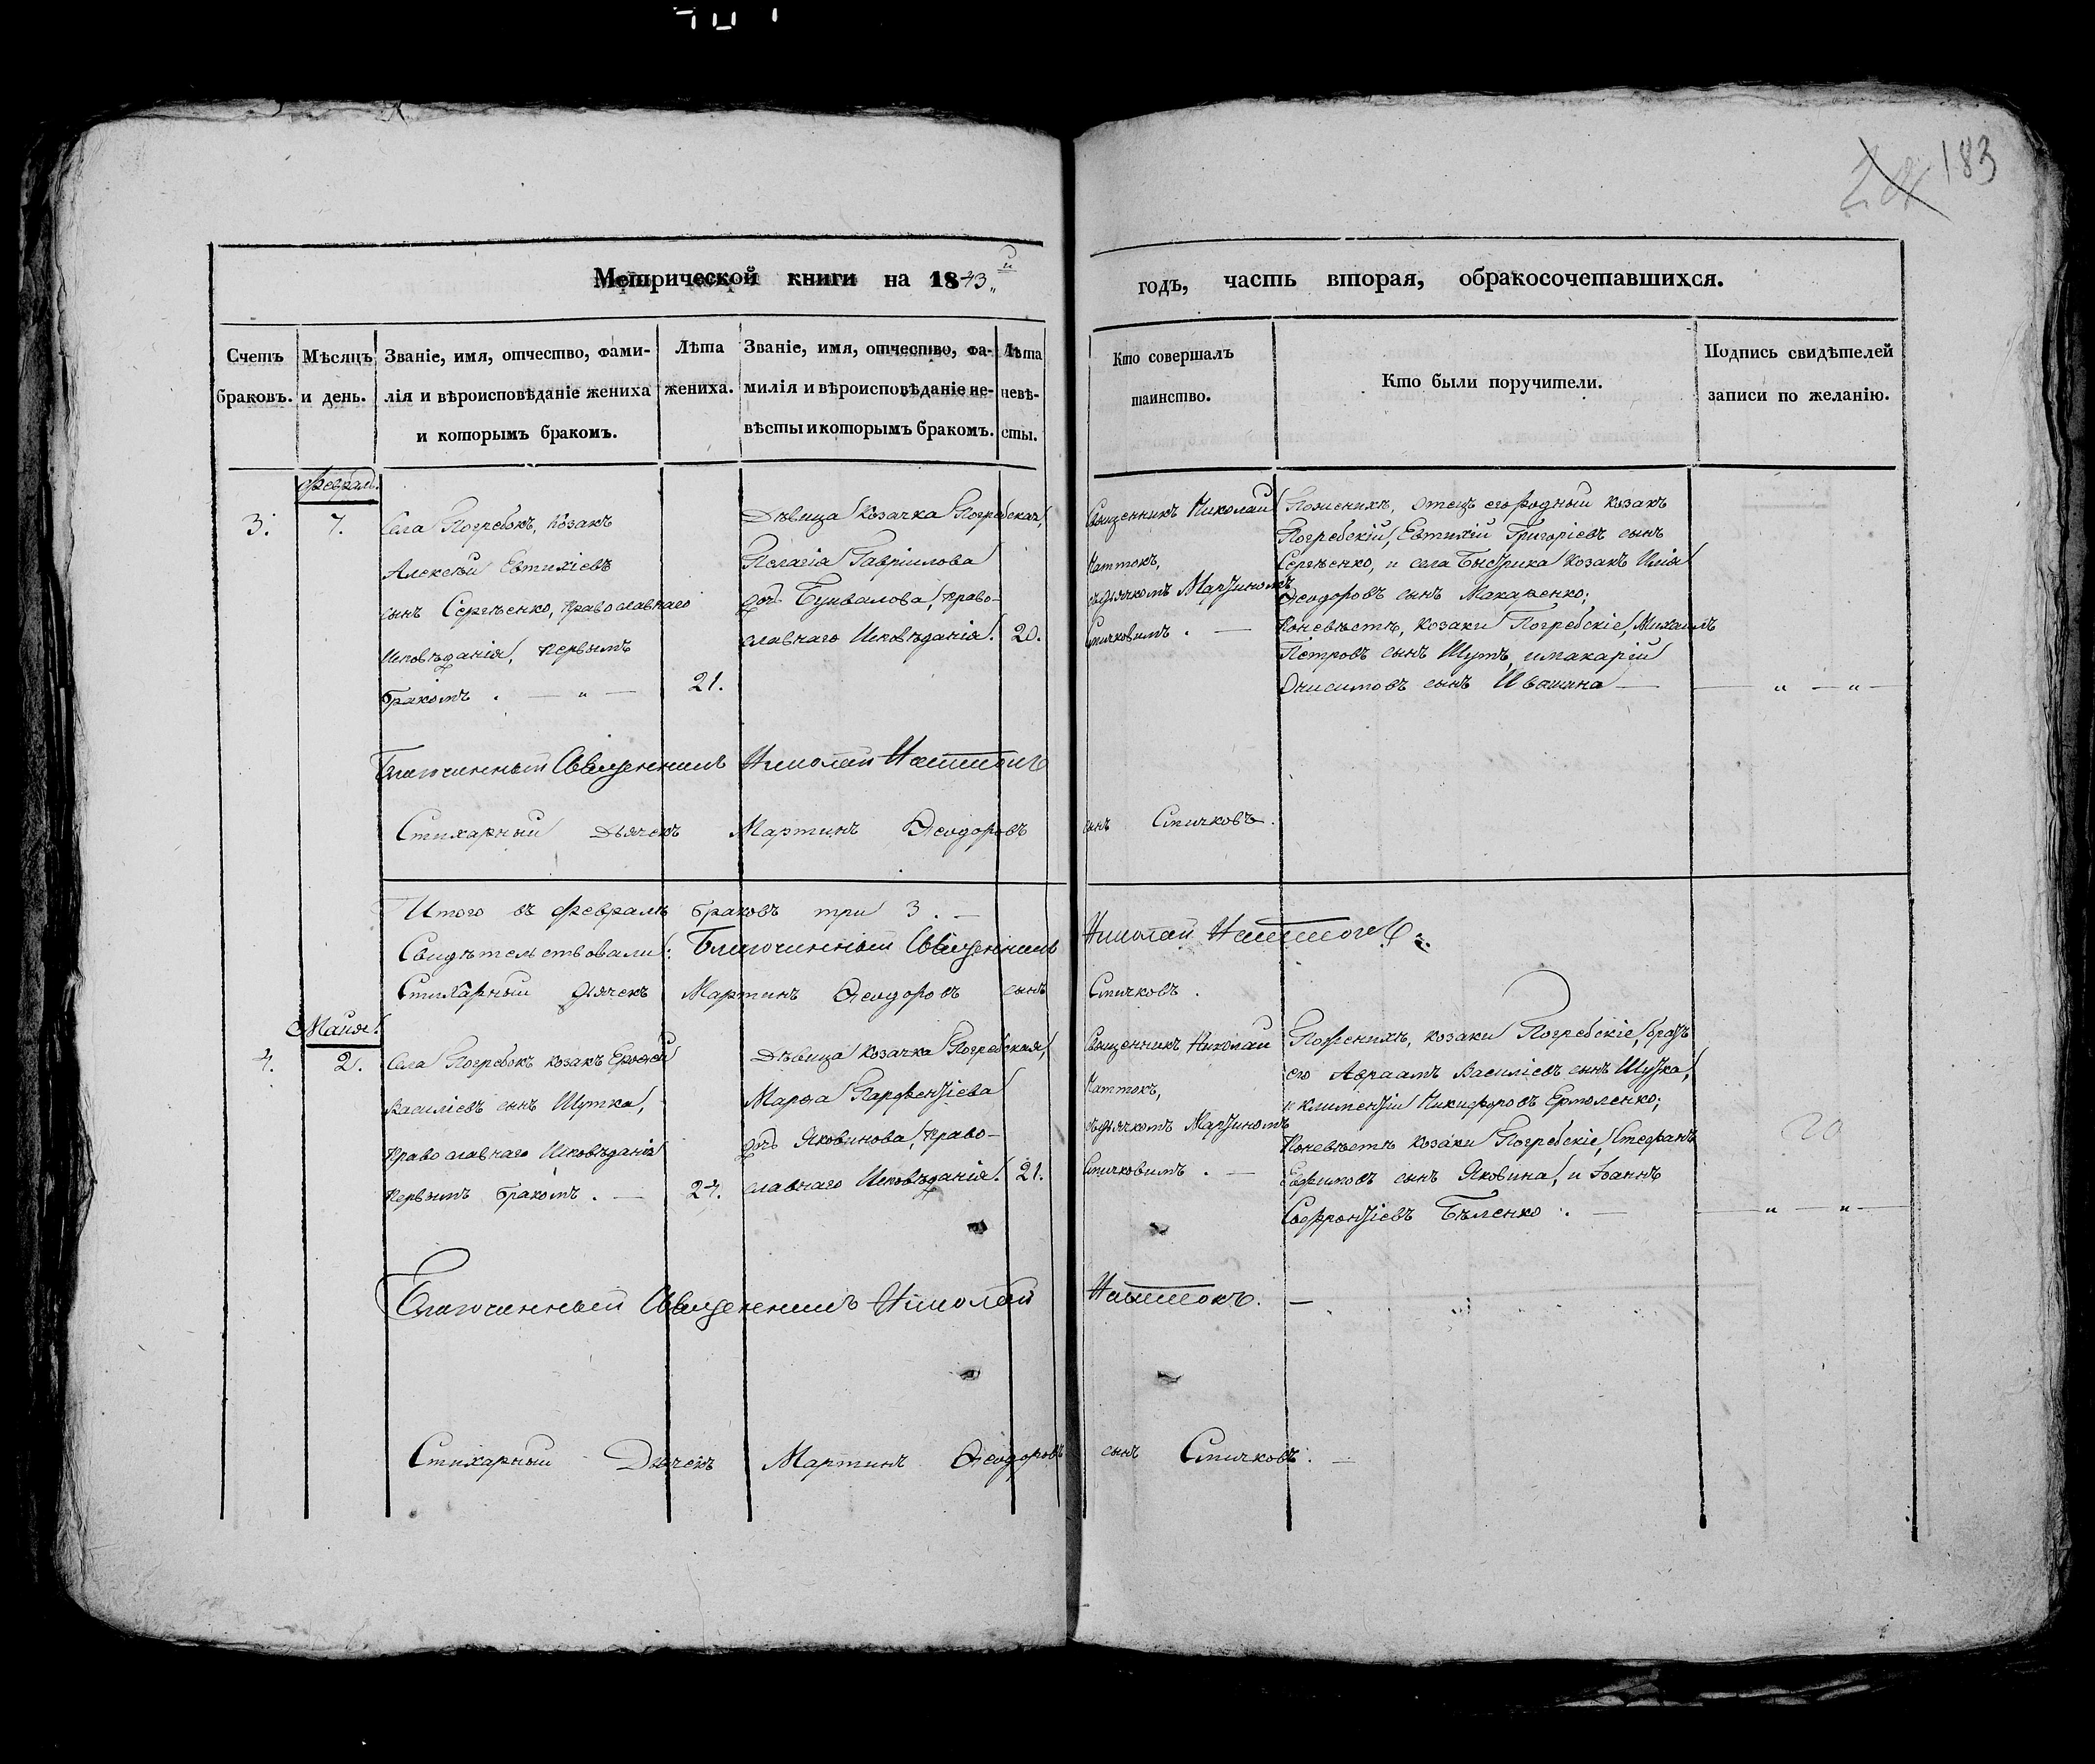 183
Метрической книги на 1843й
годъ, часть вторая, обракосочетавшихся.
Счетъ браковъ.
Мѣсяцъ и день.
Званіе, имя, отчество, фами-
лія и вѣроисповѣданіе жениха
и которымъ бракомъ.
Лѣта
жениха.
Званіе, имя, отчество, фа-
милія и вѣроисповѣданіе не-
вѣсты и которымъ бракомъ.
Лѣта
невѣ-
сты.
Кто совершалъ
таинство.
Кто были поручители.
Подпись свидѣтелей
записи по желанію.
Февраль.
3.
7.
Села Погребокъ, козакъ
Алексѣй Евтихіевъ
сынъ Сергѣенко, православнаго
Исповѣданія, первымъ
бракомъ . — „ —
21.
Дѣвица козачка Погребская,
Пелагія Гавріилова
дочь Буквалова, право-
славнаго Исповѣданія.
20.
Священникъ Николай
Наттокъ,
съ дьячкомъ Мартиномъ
Смичковимъ . —
Поженихѣ, отецъ его родный козакъ
Погребскій, Евтихій Григоріевъ сынъ
Сергѣенко, и села Быстрика козакъ Илія
Ѳеодоровъ сынъ Макаренко;
Поневѣстѣ, козаки Погребскіе, Михаилъ
Петровъ сынъ Шутъ, и макарій
Онисимовъ сынъ Ивашина —
— „ — „ —
Благочинный Священникъ Николай Наттокъ
Стихарный Дьячекъ Мартинъ Ѳеодоровъ сынъ Смичковъ.
Итого въ Февралѣ браковъ три 3. —
Свидѣтельствовали: Благочинный Священникъ Николай Наттокъ
Стихарный дьячекъ Мартинъ Ѳеодоровъ сынъ Смичковъ .
Маия.
4.
2.
Села Погребокъ козакъ Ероѳей
Василіевъ сынъ Шутка,
православнаго Исповѣданія
первымъ бракомъ . —
24.
Дѣвица козачка Погребская,
Марѳа Парфентіева
дочь Яковинова, право-
славнаго Исповѣданія.
21.
Священникъ Николай
Наттокъ,
съ дьячкомъ Мартиномъ
Смичковимъ . —
Поженихѣ, козаки Погребскіе, братъ
его Авраамъ Василіевъ сынъ Шутка,
и Климентій Никифоровъ Ермоленко;
Поневѣстѣ козаки Погребскіе, Стефанъ
Евфимовъ сынъ Яковина, и Іоаннъ
Софронтіевъ Бѣленко . —
— „ — „ —
Благочинный Священникъ Николай Наттокъ. —
Стихарный Дьячекъ Мартинъ Ѳеодоровъ сынъ Смичковъ. —